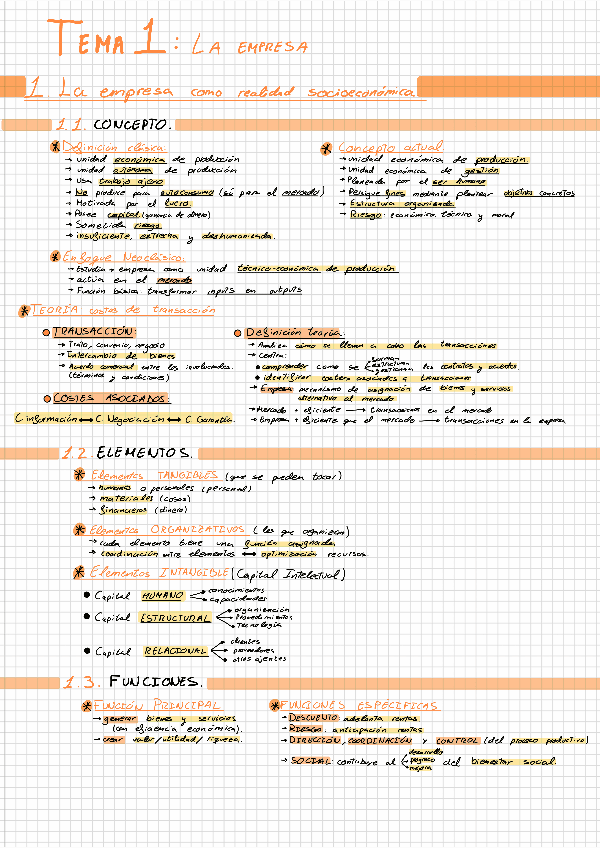 TEMA 1: LA EMPRESA
1. La empresa como realidad socioeconómica.
1.1. CONCEPTO.
* Definición clásica:
→ unidad económica de producción
→ unidad autónoma de producción
→ usa trabajo ajeno
→ No produce para autoconsumo (sí para el mercado)
→ Motivada por el lucro.
→ Posee capital (ganancia de dinero)
→ Sometida riesgo
→ insuficiente, estrecha y deshumanizada.
* Concepto actual:
→ unidad económica de producción.
→ unidad económica de gestión
→ Planeada por el ser humano
→ Persigue fines mediante planear objetivos concretos
→ Estructura organizada
→ Riesgo: económico, técnico y moral
* Enfoque Neoclásico:
→ Estudia → empresa como unidad técnico-económica de producción
→ actúa en el mercado
→ Función básica transformar inputs en outputs
* TEORÍA costes de transacción
TRANSACCIÓN:
→ Trato, convenio, negocio
→ Intercambio de bienes
→ Acuerdo comercial entre los involucrados.
(términos y condiciones)
COSTES ASOCIADOS:
C. información ↔ C. Negociación ↔ C. Garantía.
Definición teoría:
→ Analiza cómo se llevan a cabo las transacciones
→ Centra:
• comprender como se forman estructuran gestionan los contratos y acuerdos
• identificar costes asociados a transacciones
→ Empresa mecanismo de asignación de bienes y servicios
alternativo al mercado
→ Mercado + eficiente → transacciones en el mercado
→ Empresa + eficiente que el mercado → transacciones en la empresa
1.2. ELEMENTOS.
* Elementos TANGIBLES (que se pueden tocar)
→ humanos o personales (personal)
→ materiales (cosas)
→ financieros (dinero)
* Elementos ORGANIZATIVOS (los que organizan)
→ cada elemento tiene una función asignada
→ coordinación entre elementos ↔ optimización recursos
* Elementos INTANGIBLE (Capital Intelectual)
• Capital HUMANO → conocimientos
→ capacidades
• Capital ESTRUCTURAL → organización
→ Procedimientos
→ Tecnología
• Capital RELACIONAL → clientes
→ proveedores
→ otros agentes
1.3. FUNCIONES.
* FUNCIÓN PRINCIPAL
→ generar bienes y servicios
(con eficiencia económica).
→ crear valor/utilidad/riqueza.
* FUNCIONES ESPECÍFICAS
→ DESCUENTO: adelanta rentas.
→ RIESGO: anticipación rentas
→ DIRECCIÓN, COORDINACIÓN y CONTROL (del proceso productivo)
→ SOCIAL: contribuye al desarrollo progreso mejora del bienestar social.